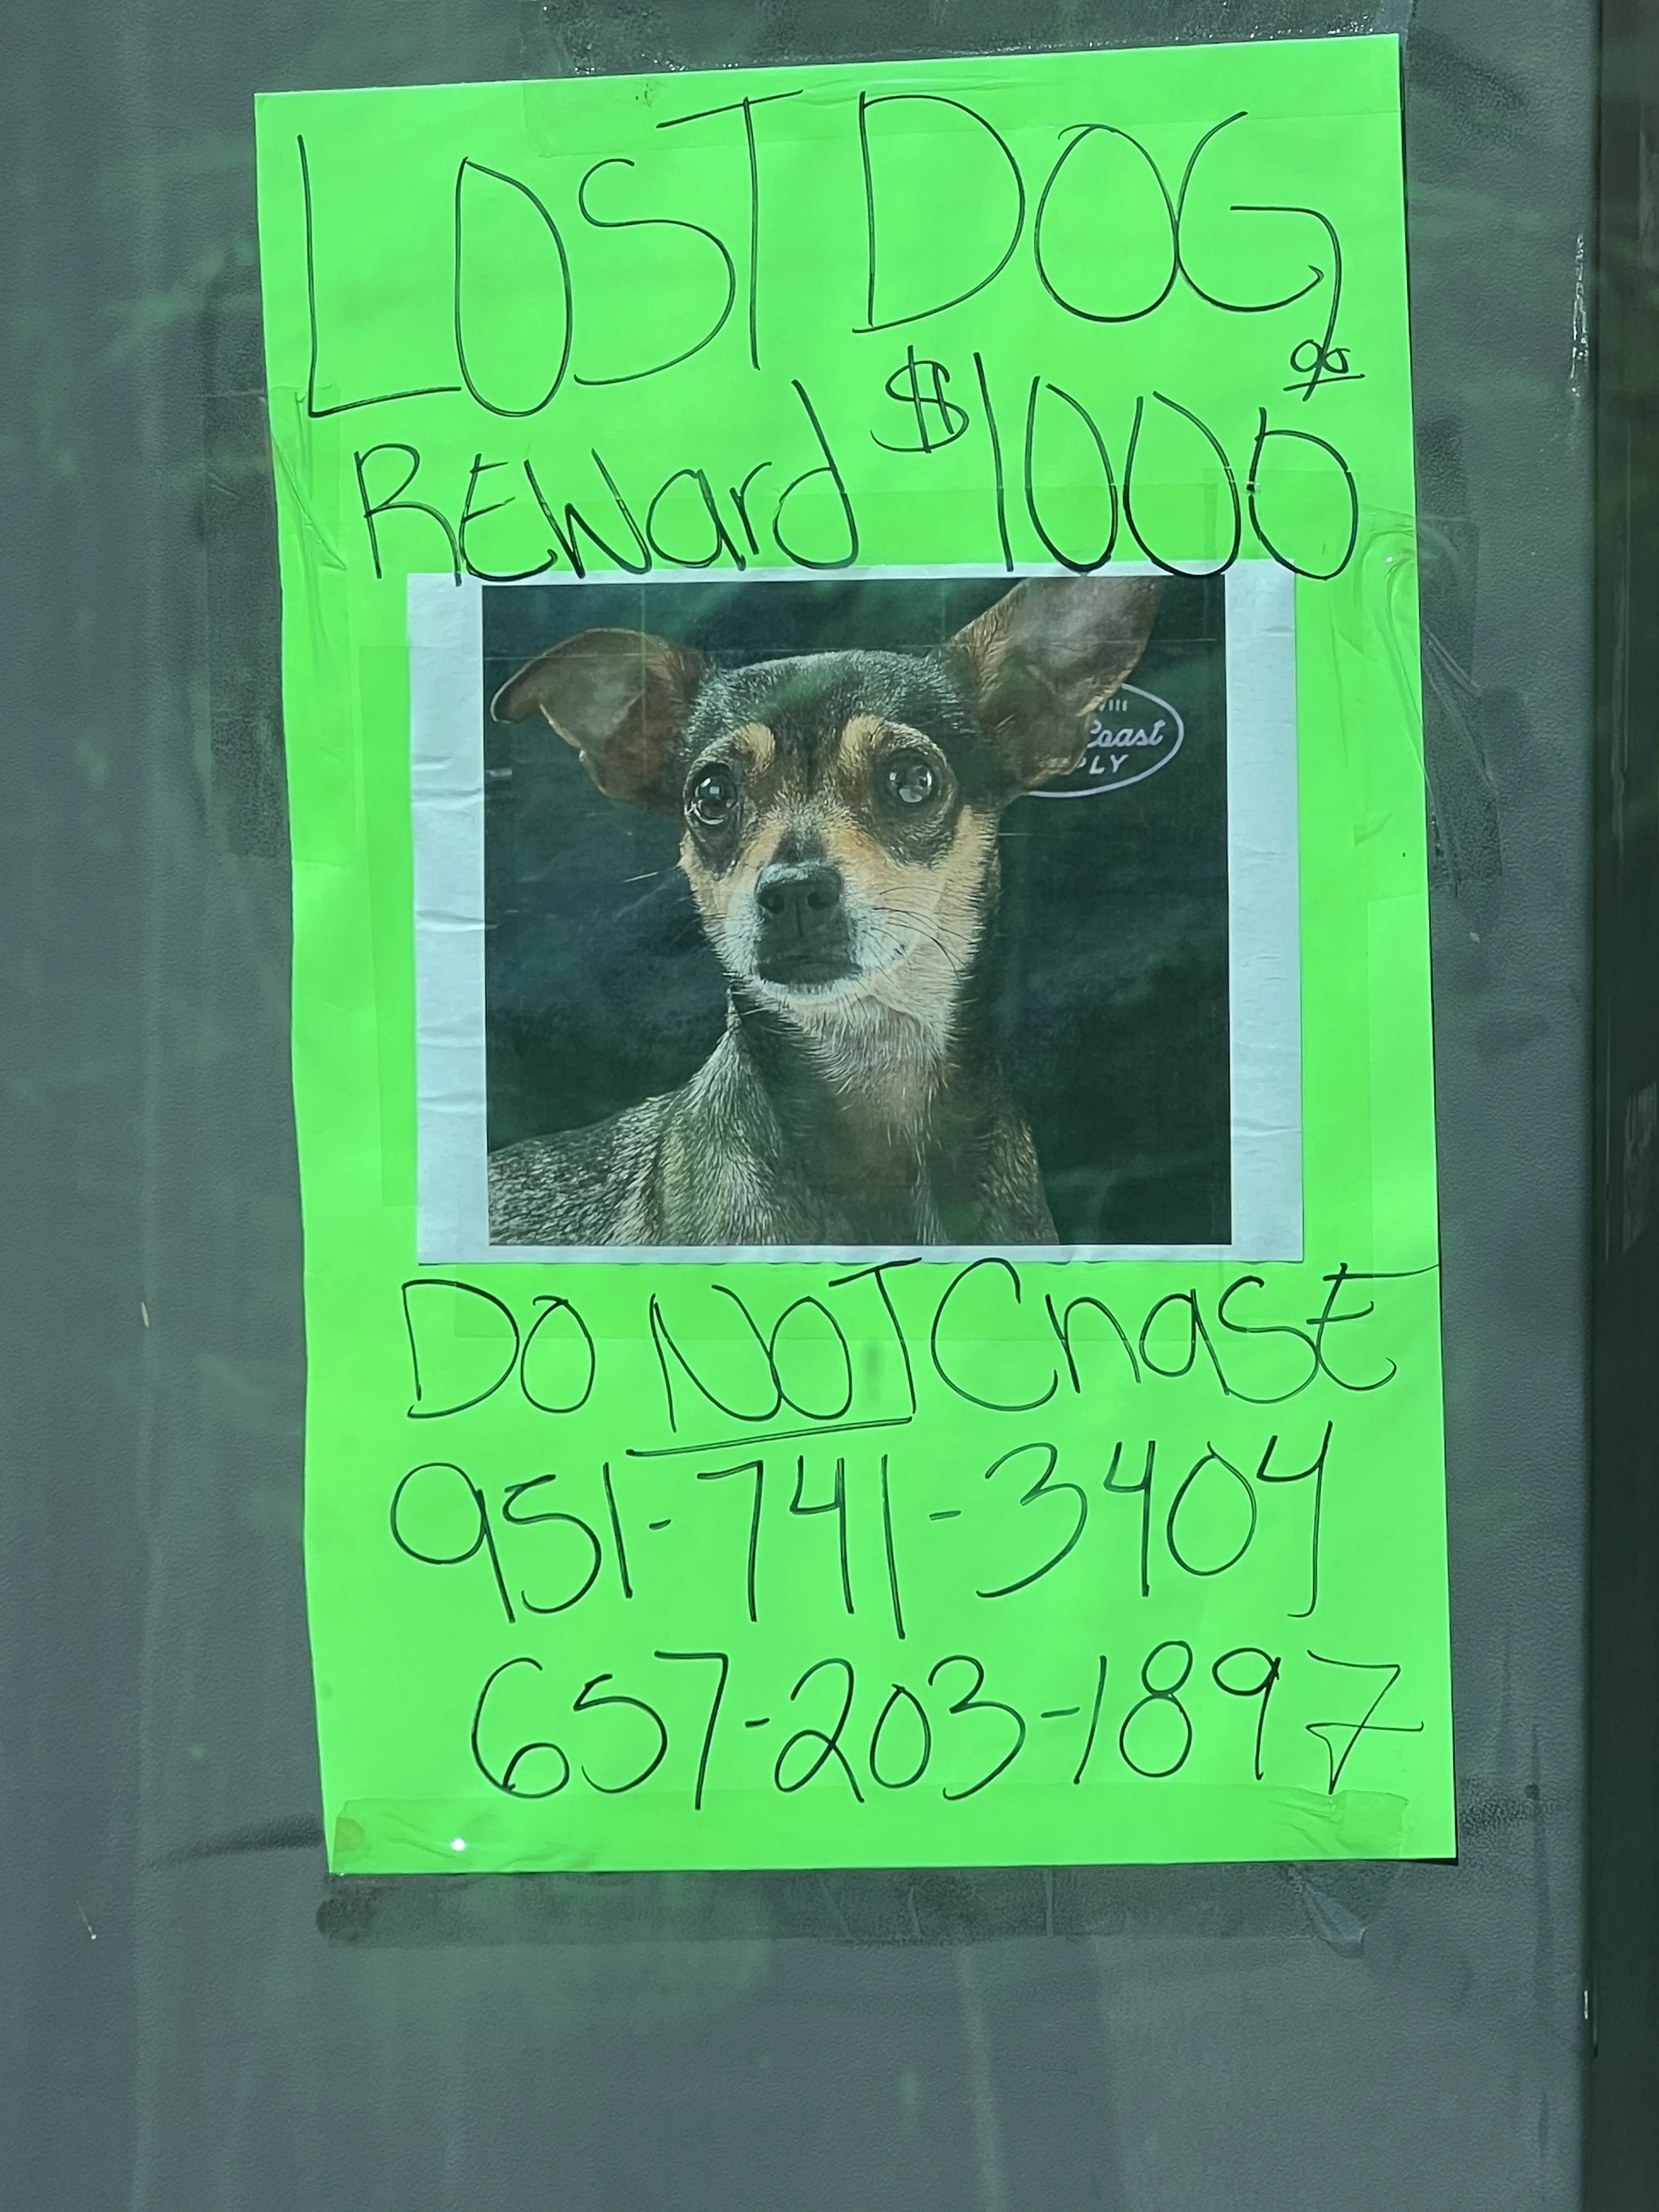 LOST DOG
REWard $1000 00
vin
Coast
PLY
DO NOT ChaSE
951-741-3404
657-203-1897